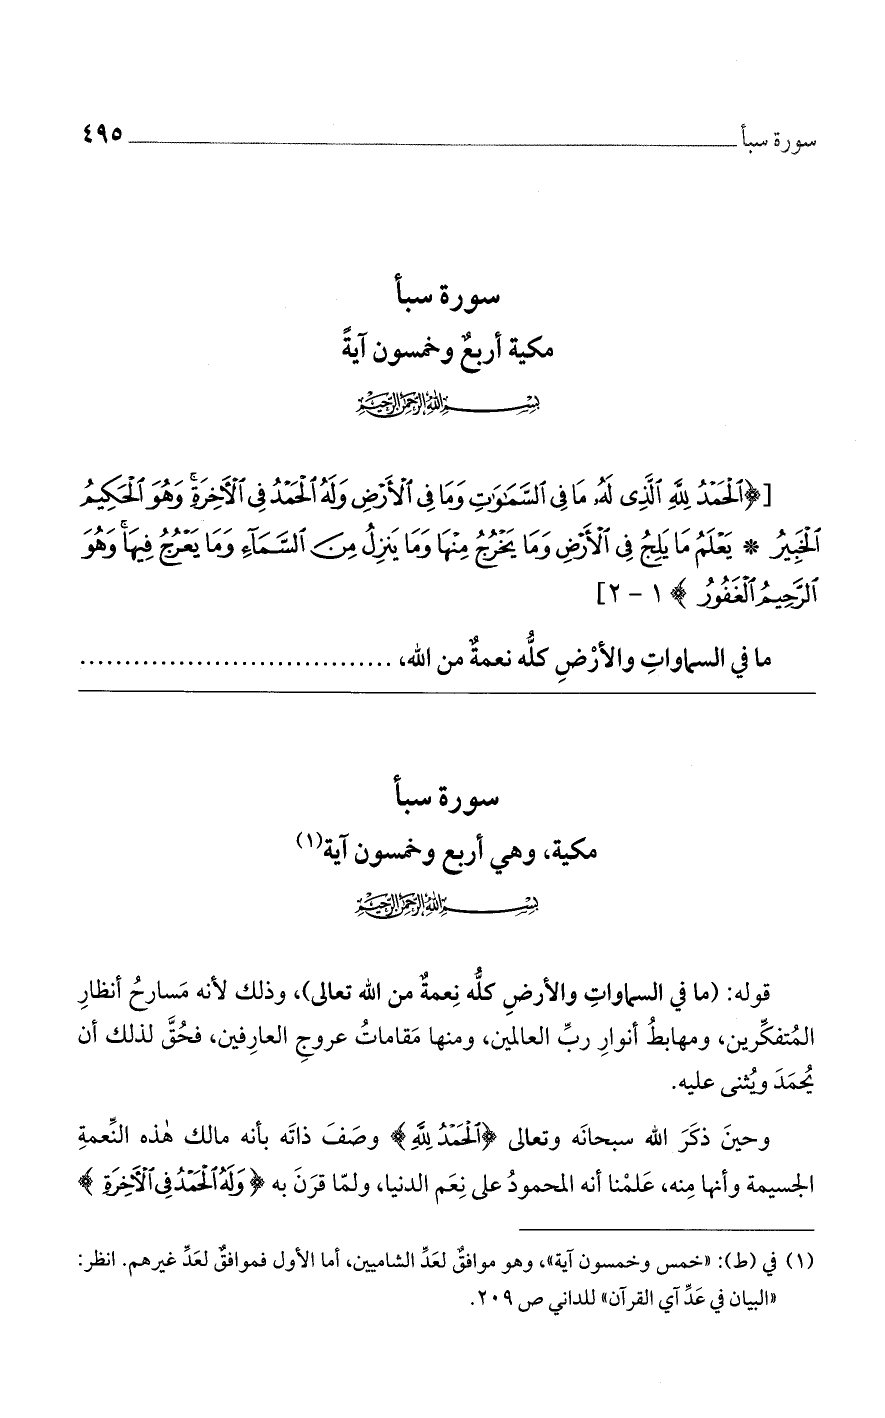 سورة سبأ ٤٩٥
سورة سبأ
مكية أربعٌ وخمسون آيةً
بِسْمِ اللَّهِ الرَّحْمَنِ الرَّحِيمِ
[﴿ٱلْحَمْدُ لِلَّهِ ٱلَّذِى لَهُۥ مَا فِى ٱلسَّمَٰوَٰتِ وَمَا فِى ٱلْأَرْضِ وَلَهُ ٱلْحَمْدُ فِى ٱلْأَخِرَةِ ۚ وَهُوَ ٱلْحَكِيمُ
ٱلْخَبِيرُ * يَعْلَمُ مَا يَلِجُ فِى ٱلْأَرْضِ وَمَا يَخْرُجُ مِنْهَا وَمَا يَنزِلُ مِنَ ٱلسَّمَآءِ وَمَا يَعْرُجُ فِيهَا ۚ وَهُوَ
ٱلرَّحِيمُ ٱلْغَفُورُ﴾ ١ - ٢]
ما في السماواتِ والأرْضِ كلُّه نعمةٌ من الله، ...................................
سورة سبأ
مكية، وهي أربع وخمسون آية(١)
بِسْمِ اللَّهِ الرَّحْمَنِ الرَّحِيمِ
قوله: (ما في السماواتِ والأرضِ كلُّه نِعمةٌ من الله تعالى)، وذلك لأنه مَسارحُ أنظارِ
المُتفكِّرين، ومهابطُ أنوارِ ربِّ العالمين، ومنها مَقاماتُ عروجِ العارِفين، فحُقَّ لذلك أن
يُحمَدَ ويُثنى عليه.
وحينَ ذكَرَ الله سبحانَه وتعالى ﴿ٱلْحَمْدُ لِلَّهِ﴾ وصَفَ ذاتَه بأنه مالك هٰذه النِّعمةِ
الجسيمة وأنها مِنه، عَلمْنا أنه المحمودُ على نِعَم الدنيا، ولمّا قرَنَ به ﴿وَلَهُ ٱلْحَمْدُ فِى ٱلْأَخِرَةِ﴾
(١) في (ط): «خمس وخمسون آية»، وهو موافقٌ لعَدِّ الشاميين، أما الأول فموافقٌ لعَدِّ غيرهم. انظر:
«البيان في عَدِّ آي القرآن» للداني ص ٢٠٩.